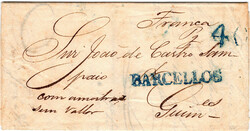 Franca
Snr João de Castro Sam
paio
BARCELLOS
com amostras
sem vallor
Guim.es